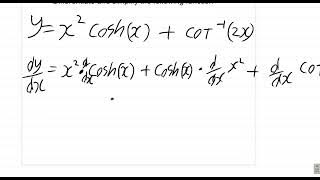 y = x² cosh(x) + cot⁻¹(2x)
dy/dx = x² · d/dx cosh(x) + cosh(x) · d/dx x² + d/dx cot